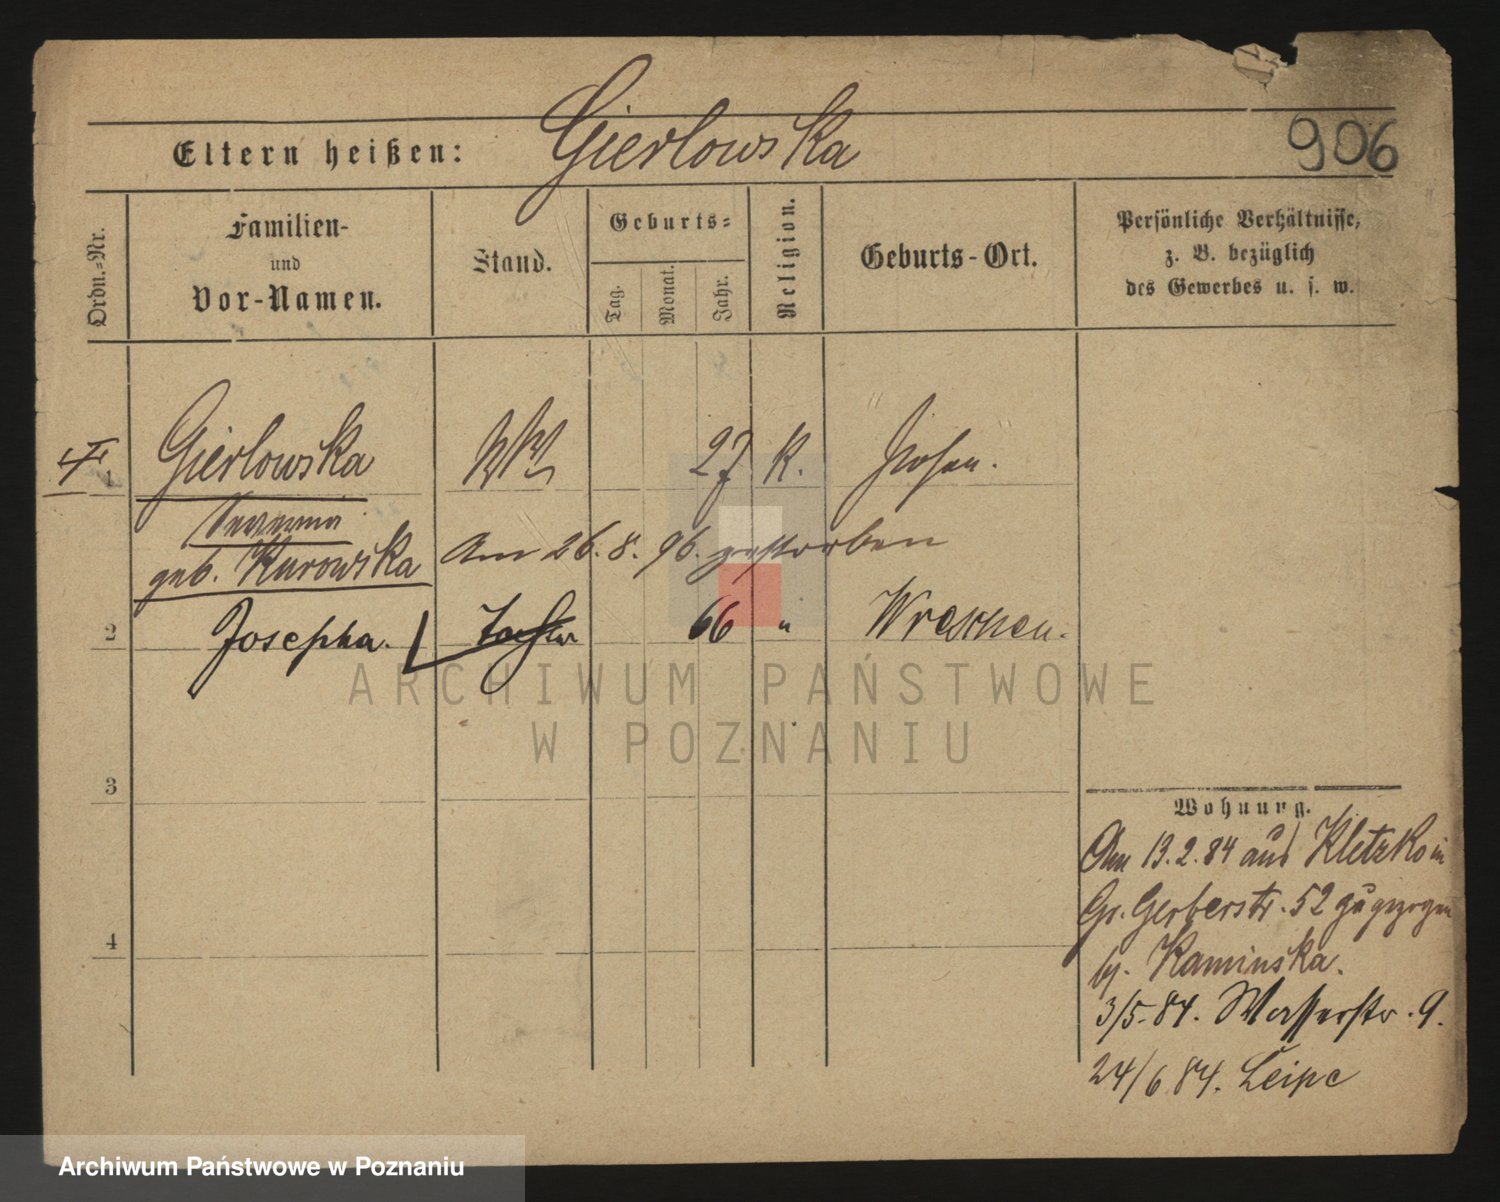 Gierlowska
906
Eltern heißen:
Ordn.-Nr.
Familien-
und
Vor-Namen.
Stand.
Geburts-
Tag.
Monat.
Jahr.
Religion.
Geburts-Ort.
Persönliche Verhältnisse,
z. B. bezüglich
des Gewerbes u. s. w.
1 Gierlowska 27 K. Posen.
geb. Kurowska Am 26. 8. 96. gestorben
2 Josepha. Tochter 66 " Wreschen.
3
4
Wohnung.
Am 13.2.84 aus Kletzko in
Gr. Gerberstr. 52 zugezogen
Kaminska.
3/5.84. Wasserstr. 9.
24/6 84.
ARCHIWUM PAŃSTWOWE
W POZNANIU
Archiwum Państwowe w Poznaniu